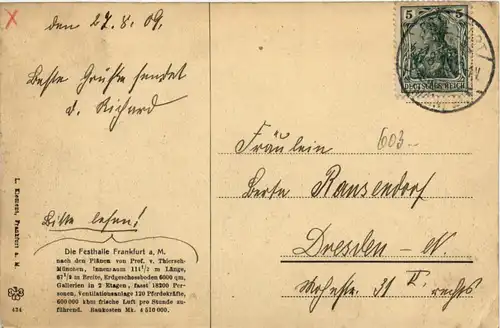 den 27. 8. 09.
Beste Grüße sendet
d. Richard
Bitte lesen!
Die Festhalle Frankfurt a. M.
nach den Plänen von Prof. v. Thiersch-
München, Innenraum 114 1/2 m Länge,
67 1/2 m Breite, Erdgeschossboden 6000 qm,
Gallerien in 2 Etagen, fasst 18200 Per-
sonen, Ventilationsanlage 120 Pferdekräfte,
600 000 kbm frische Luft pro Stunde zu-
führend. Baukosten Mk. 4 510 000.
L. Klement, Frankfurt a. M.
434
5 5
DEUTSCHES REICH
603
Fräulein
Berta Ransendorf
Dresden - N.
31 II. rechts